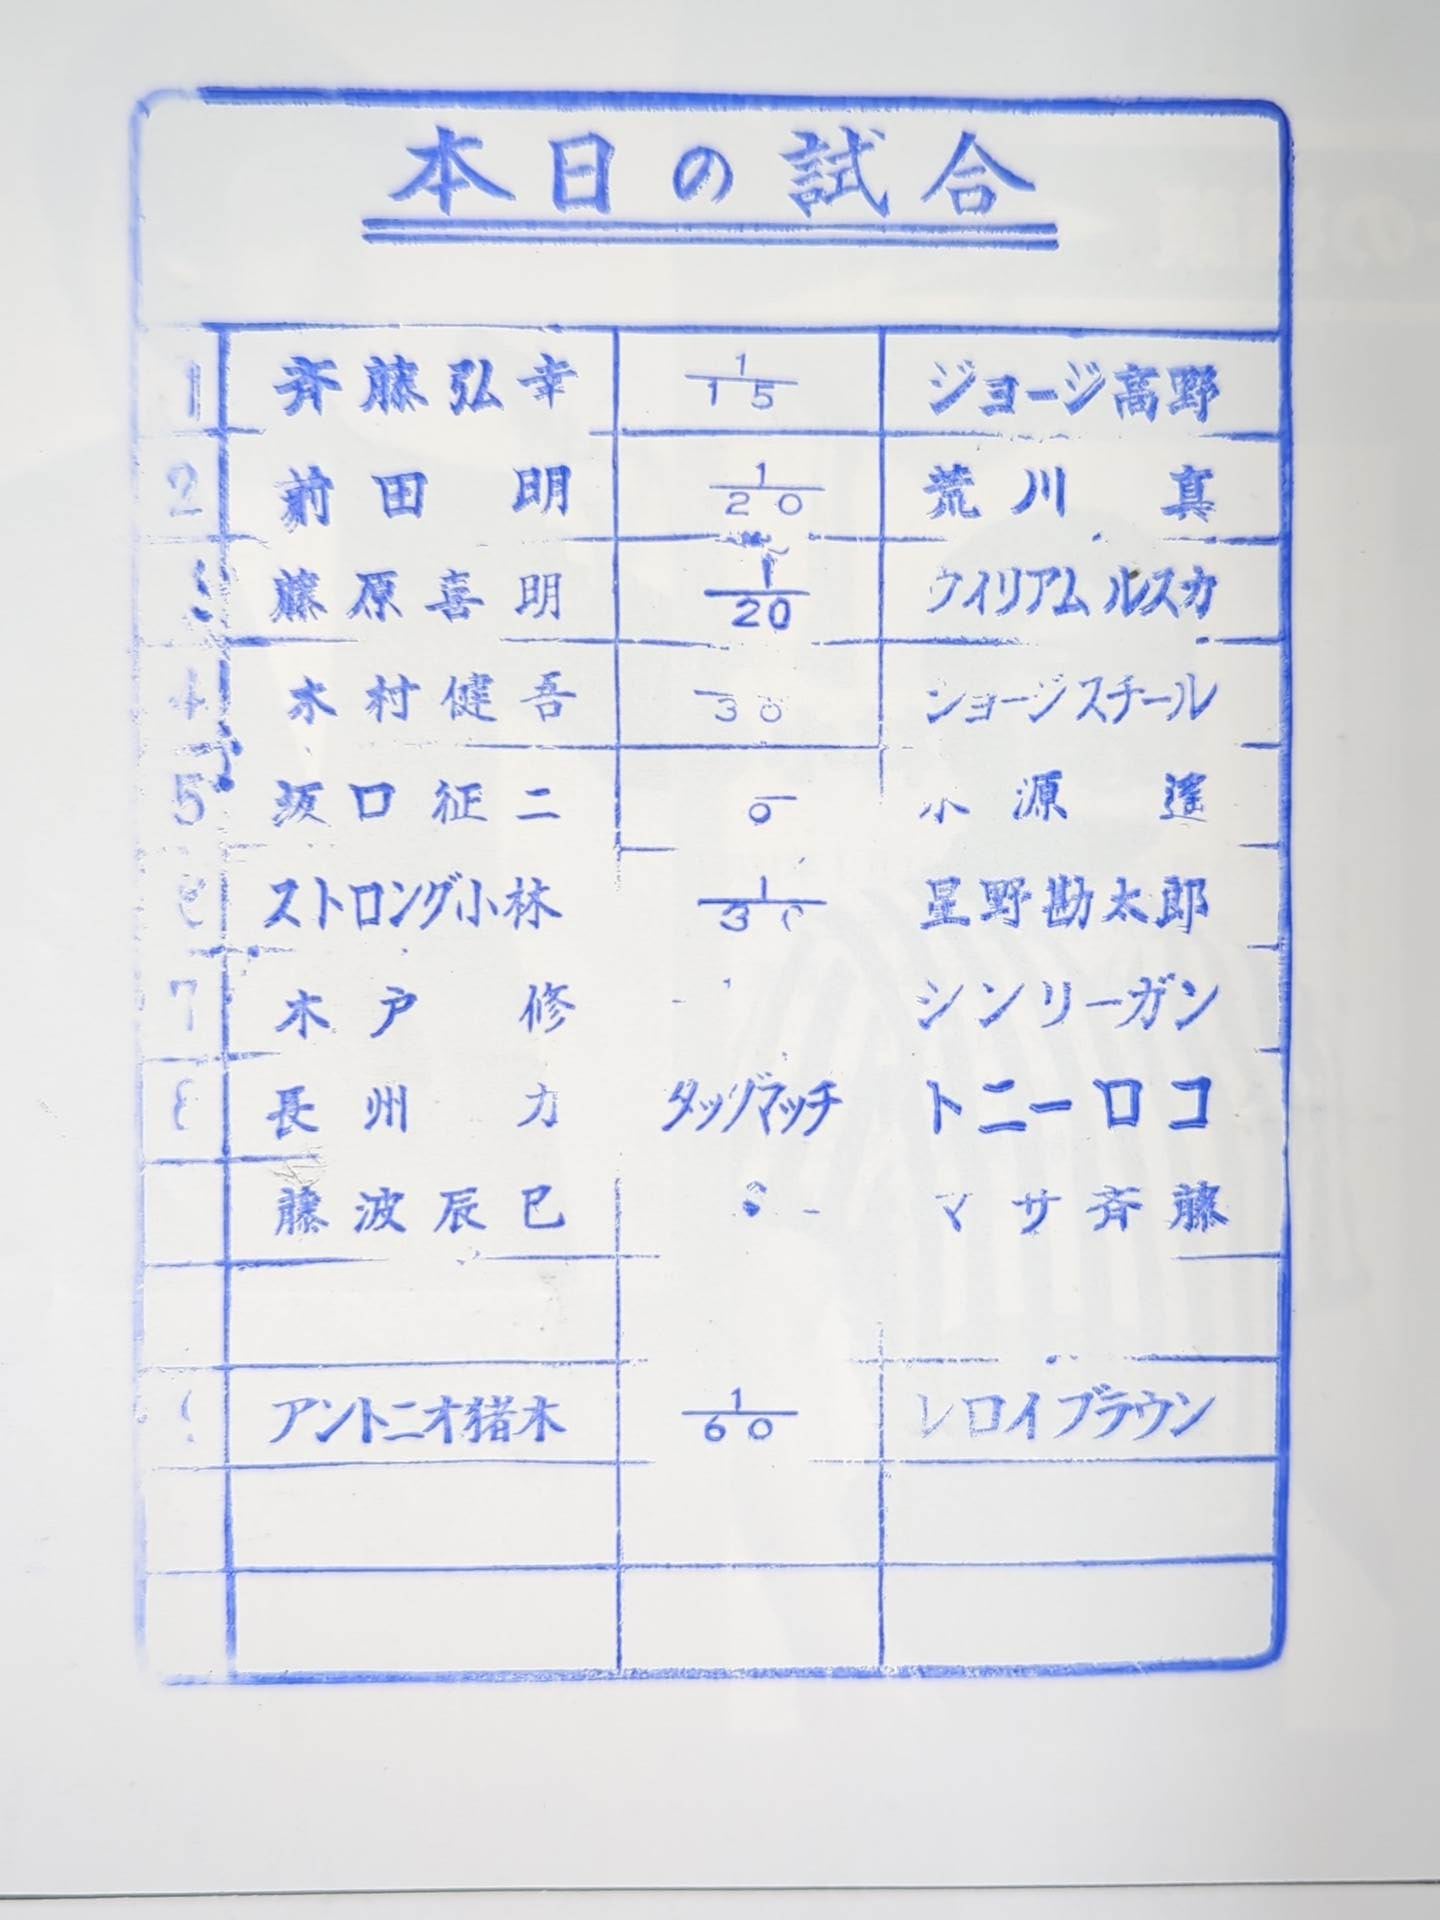 本日の試合
1 斉藤弘幸 1/15 ジョージ高野
2 前田 明 1/20 荒川 真
3 藤原喜明 1/20 ウィリアム ルスカ
4 木村健吾 30 ジョージスチール
5 坂口征二 0 永源 遙
ストロング小林 1/30 星野勘太郎
7 木戸 修 シンリーガン
8 長州 力 タッグマッチ トニーロコ
藤波辰巳 マサ斉藤
アントニオ猪木 1/60 レロイブラウン